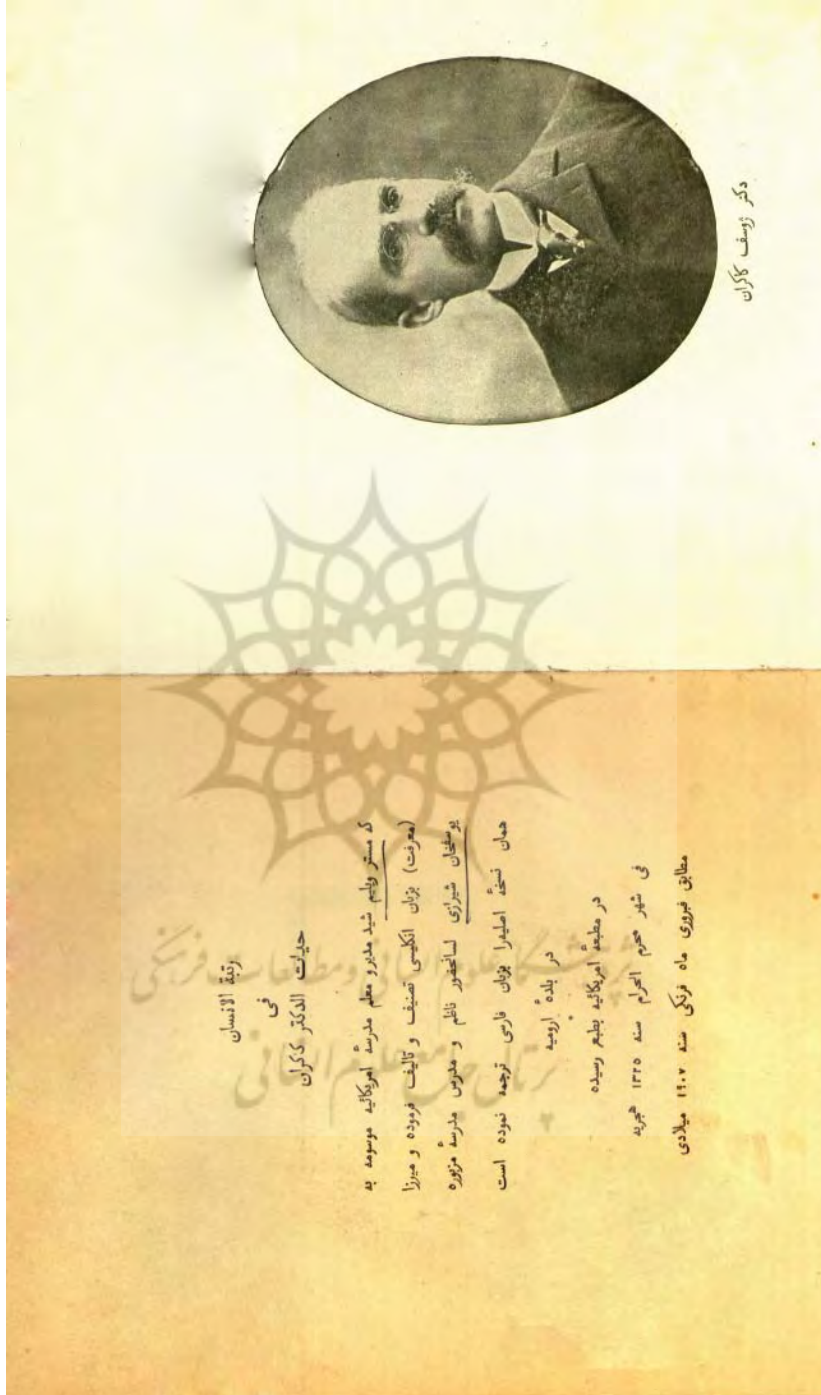 دکتر ژوسف کاکران
رتبة الانسان
فی
حیات الدکتر کاکران
که مستر ولیم شید مدیر و معلم مدرسهٔ امریکائیه موسومه به
(معرفت) بزبان انکلیسی تصنیف و تالیف فرموده و میرزا
یوسفخان شیرازی لسانحضور ناظم و مدرس مدرسهٔ مزبوره
همان نسخهٔ اصلیه‌را بزبان فارسی ترجمه نموده است
در بلدهٔ ارومیه
در مطبعهٔ امریکائیه بطبع رسیده
فی شهر محرم الحرام سنه ۱۳۲۵ هجریه
مطابق فبروری ماه فرنکی سنه ۱۹۰۷ میلادی
پژوهشگاه علوم انسانی و مطالعات فرهنگی
پرتال جامع علوم انسانی